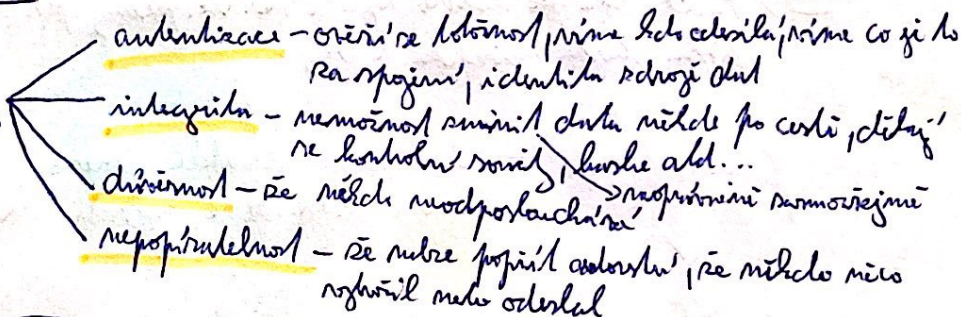 autentizace – ověří se totožnost, víme kdo odesílá, víme co je to
za spojení, identita zdroje dat
integrita – nemožnost změnit data někde po cestě, dělají
se kontrolní součty, hashe atd...
→ neoprávněně samozřejmě
důvěrnost – že někdo neodposlouchává
nepopiratelnost – že nelze popřít autorství, že někdo něco
vytvořil nebo odeslal